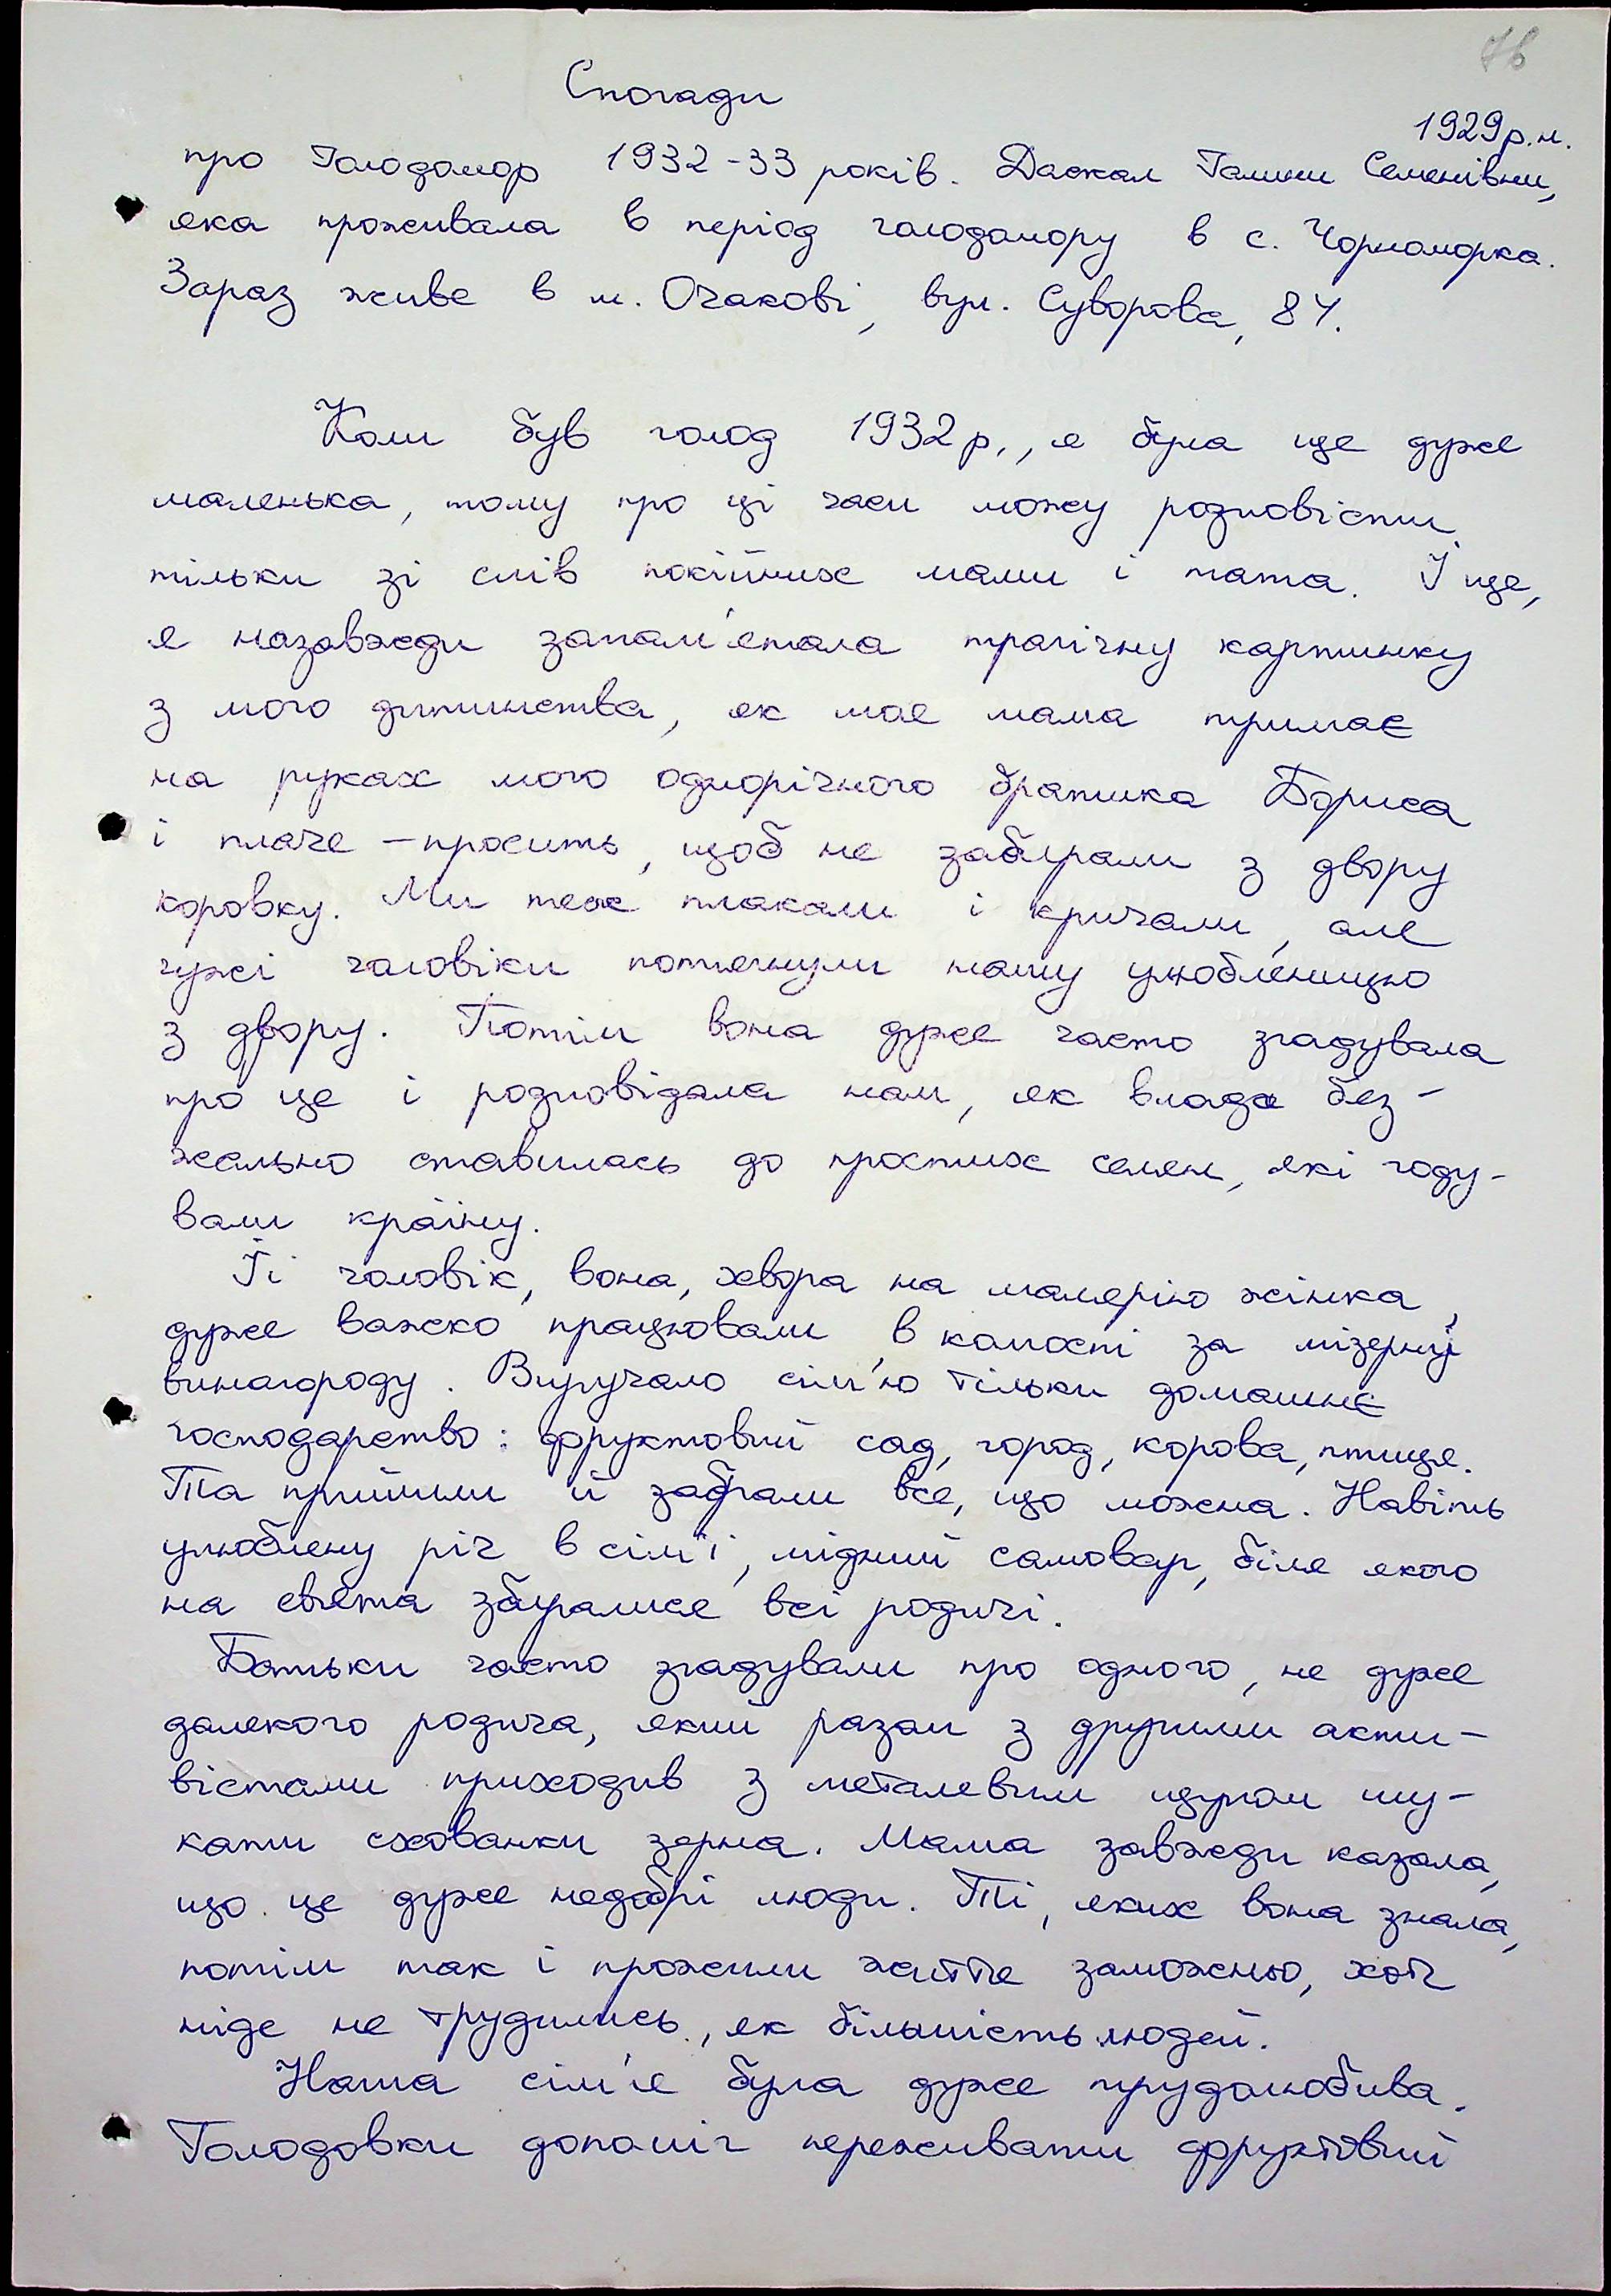 76
Спогади
1929 р.н.
про Голодомор 1932-33 років. Даскал Галини Семенівни,
яка проживала в період голодомору в с. Чорноморка.
Зараз живе в м. Очакові, вул. Суворова, 84.
Коли був голод 1932 р., я була ще дуже
маленька, тому про ці часи можу розповісти
тільки зі слів покійних мами і тата. І ще,
я назавжди запам'ятала трагічну картинку
з мого дитинства, як моя мама тримає
на руках мого однорічного братика Бориса
і плаче - просить, щоб не забирали з двору
коровку. Ми теж плакали і кричали, але
чужі чоловіки потягнули нашу улюбленицю
з двору. Потім вона дуже часто згадувала
про це і розповідала нам, як влада без-
жально ставилась до простих семей, які году-
вали країну.
Її чоловік, вона, хвора на малярію жінка,
дуже важко працювали в колгоспі за мізерну
винагороду. Виручало сім'ю тільки домашнє
господарство: фруктовий сад, город, корова, птиця.
Та прийшли й забрали все, що можна. Навіть
улюблену річ в сім'ї, мідний самовар, біля якого
на свята збиралися всі родичі.
Батьки часто згадували про одного, не дуже
далекого родича, який разом з другими акти-
вістами приходив з металевим щупом шу-
кати схованки зерна. Мама завжди казала,
що це дуже недобрі люди. Ті, яких вона знала,
потім так і прожили життя заможньо, хоч
ніде не трудились, як більшість людей.
Наша сім'я була дуже трудолюбива.
Голодовки допоміг переживати фруктовий